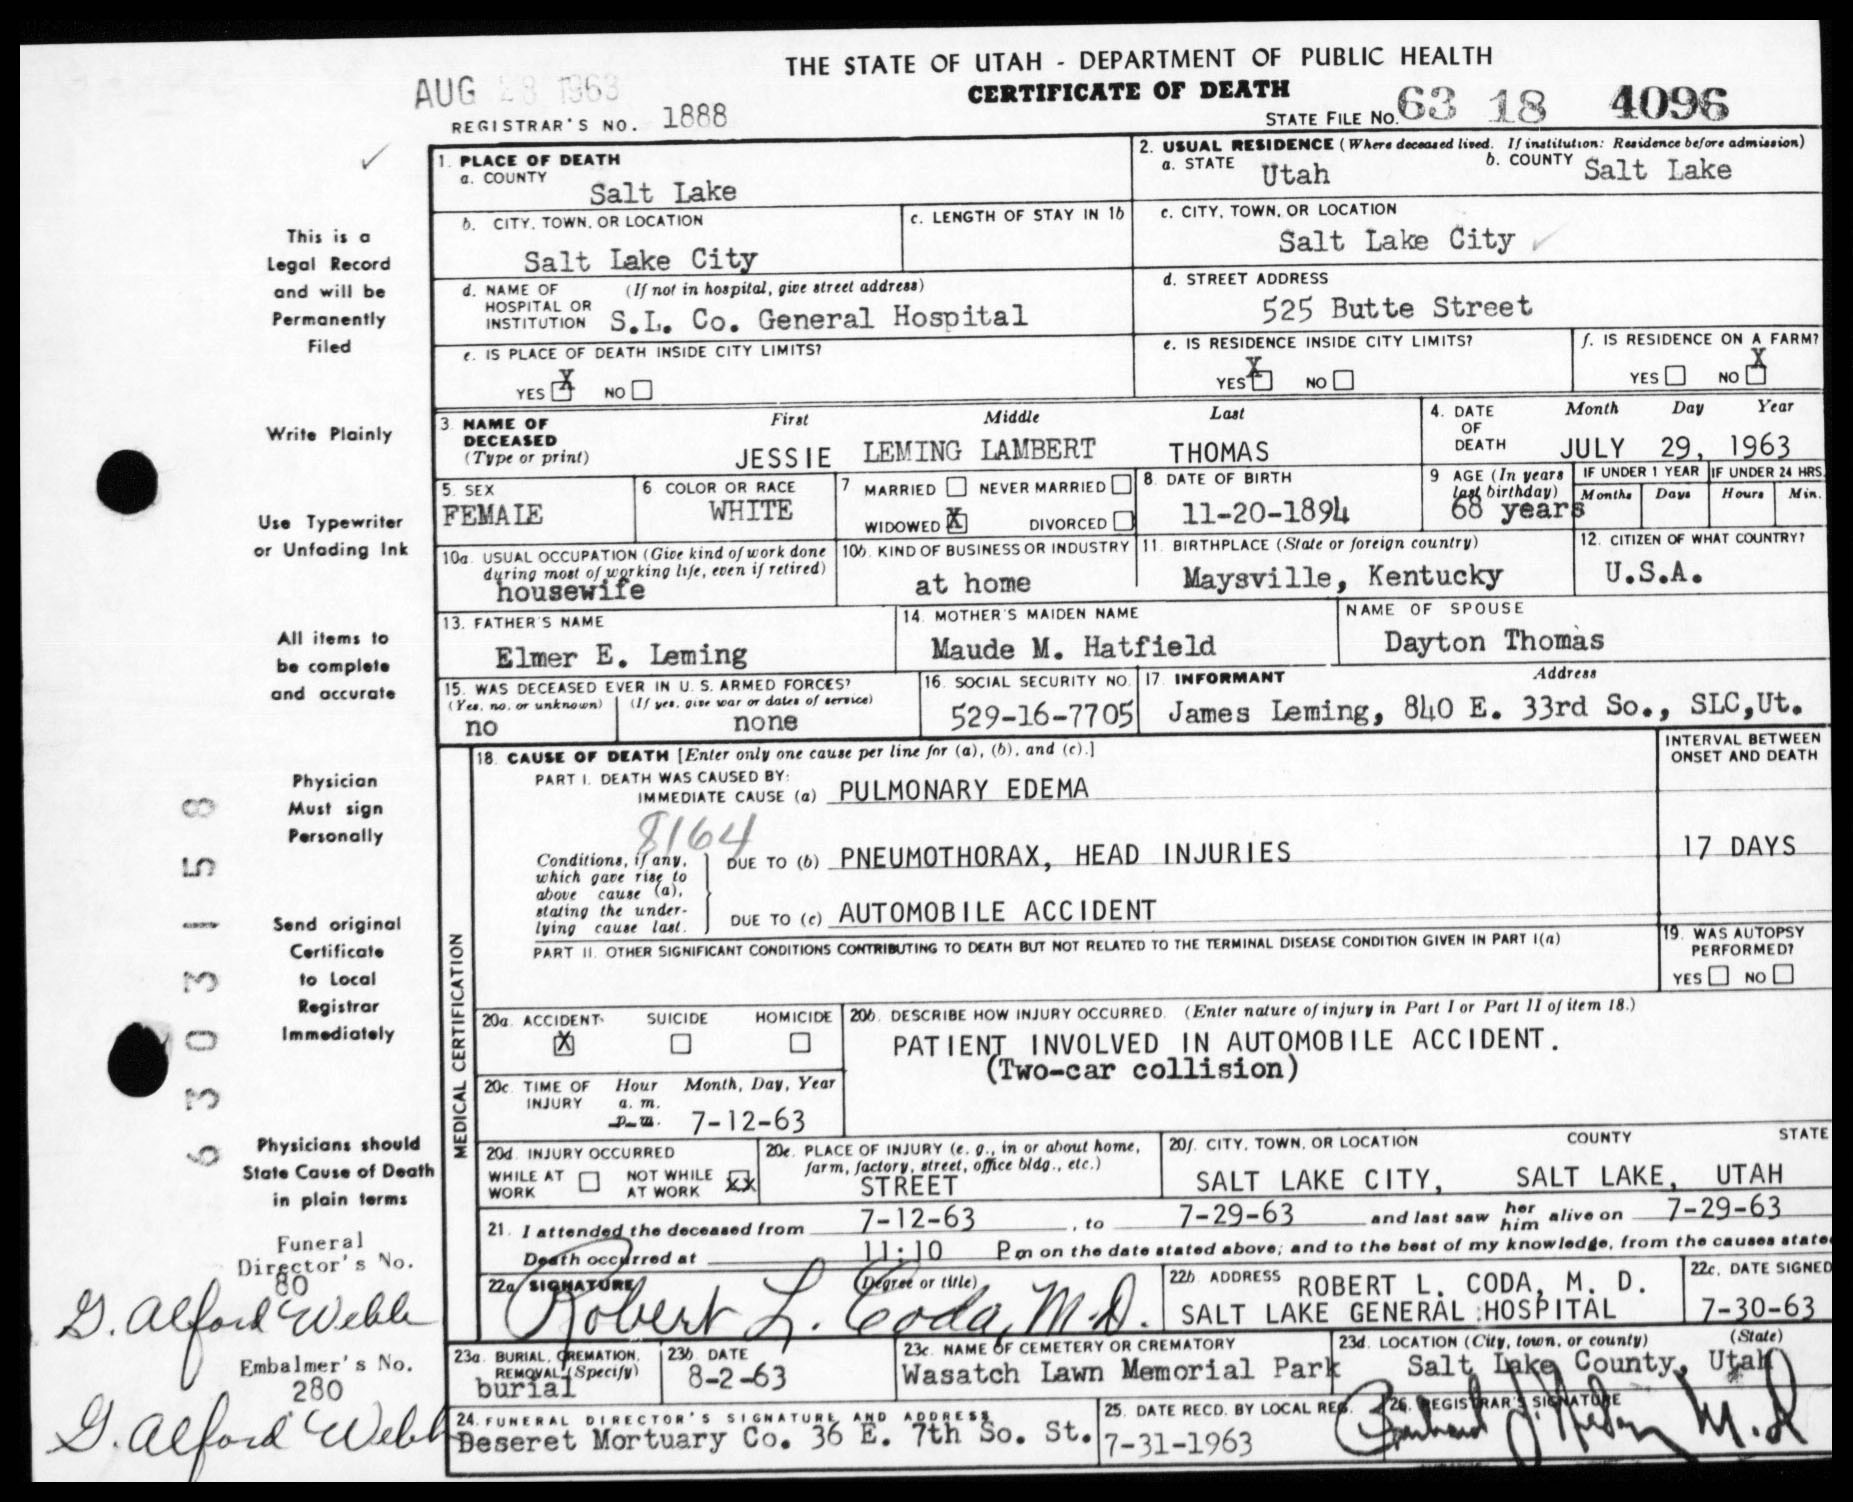 THE STATE OF UTAH - DEPARTMENT OF PUBLIC HEALTH
CERTIFICATE OF DEATH
AUG 28 1963
REGISTRAR'S NO. 1888
STATE FILE NO. 63 18 4096
This is a
Legal Record
and will be
Permanently
Filed
Write Plainly
Use Typewriter
or Unfading Ink
All items to
be complete
and accurate
Physician
Must sign
Personally
Send original
Certificate
to Local
Registrar
Immediately
Physicians should
State Cause of Death
in plain terms
6303158
Funeral
Director's No.
80
G. Alford Webb
Embalmer's No.
280
G. Alford Webb
1. PLACE OF DEATH
a. COUNTY
Salt Lake
2. USUAL RESIDENCE (Where deceased lived. If institution: Residence before admission)
a. STATE Utah b. COUNTY Salt Lake
b. CITY, TOWN, OR LOCATION
Salt Lake City
c. LENGTH OF STAY IN 1b
c. CITY, TOWN, OR LOCATION
Salt Lake City
d. NAME OF (If not in hospital, give street address)
HOSPITAL OR
INSTITUTION S.L. Co. General Hospital
d. STREET ADDRESS
525 Butte Street
e. IS PLACE OF DEATH INSIDE CITY LIMITS?
YES X NO
e. IS RESIDENCE INSIDE CITY LIMITS?
YES X NO
f. IS RESIDENCE ON A FARM?
YES NO X
3. NAME OF
DECEASED
(Type or print)
First Middle Last
JESSIE LEMING LAMBERT THOMAS
4. DATE
OF
DEATH
Month Day Year
JULY 29, 1963
5. SEX
FEMALE
6. COLOR OR RACE
WHITE
7 MARRIED NEVER MARRIED
WIDOWED X DIVORCED
8. DATE OF BIRTH
11-20-1894
9 AGE (In years
last birthday)
68 years
IF UNDER 1 YEAR
Months Days
IF UNDER 24 HRS.
Hours Min.
10a. USUAL OCCUPATION (Give kind of work done
during most of working life, even if retired)
housewife
10b. KIND OF BUSINESS OR INDUSTRY
at home
11. BIRTHPLACE (State or foreign country)
Maysville, Kentucky
12. CITIZEN OF WHAT COUNTRY?
U.S.A.
13. FATHER'S NAME
Elmer E. Leming
14. MOTHER'S MAIDEN NAME
Maude M. Hatfield
NAME OF SPOUSE
Dayton Thomas
15. WAS DECEASED EVER IN U.S. ARMED FORCES?
(Yes, no, or unknown) (If yes, give war or dates of service)
no none
16. SOCIAL SECURITY NO.
529-16-7705
17. INFORMANT Address
James Leming, 840 E. 33rd So., SLC,Ut.
MEDICAL CERTIFICATION
18. CAUSE OF DEATH [Enter only one cause per line for (a), (b), and (c).]
INTERVAL BETWEEN
ONSET AND DEATH
PART I. DEATH WAS CAUSED BY:
IMMEDIATE CAUSE (a) PULMONARY EDEMA
8164
Conditions, if any,
which gave rise to
above cause (a),
stating the under-
lying cause last.
DUE TO (b) PNEUMOTHORAX, HEAD INJURIES
17 DAYS
DUE TO (c) AUTOMOBILE ACCIDENT
PART II. OTHER SIGNIFICANT CONDITIONS CONTRIBUTING TO DEATH BUT NOT RELATED TO THE TERMINAL DISEASE CONDITION GIVEN IN PART I(a)
19. WAS AUTOPSY
PERFORMED?
YES NO
20a. ACCIDENT SUICIDE HOMICIDE
X
20b. DESCRIBE HOW INJURY OCCURRED. (Enter nature of injury in Part I or Part II of item 18.)
PATIENT INVOLVED IN AUTOMOBILE ACCIDENT.
(Two-car collision)
20c. TIME OF Hour Month, Day, Year
INJURY a. m.
p. m. 7-12-63
20d. INJURY OCCURRED
WHILE AT
WORK
NOT WHILE
AT WORK XX
20e. PLACE OF INJURY (e. g., in or about home,
farm, factory, street, office bldg., etc.)
STREET
20f. CITY, TOWN, OR LOCATION COUNTY STATE
SALT LAKE CITY, SALT LAKE, UTAH
21. I attended the deceased from 7-12-63, to 7-29-63 and last saw her him alive on 7-29-63
Death occurred at 11:10 P m on the date stated above; and to the best of my knowledge, from the causes state
22a SIGNATURE (Degree or title)
Robert L. Coda, M.D.
22b ADDRESS ROBERT L. CODA, M. D.
SALT LAKE GENERAL HOSPITAL
22c. DATE SIGNED
7-30-63
23a. BURIAL, CREMATION,
REMOVAL (Specify)
burial
23b DATE
8-2-63
23c. NAME OF CEMETERY OR CREMATORY
Wasatch Lawn Memorial Park
23d. LOCATION (City, town, or county) (State)
Salt Lake County, Utah
24. FUNERAL DIRECTOR'S SIGNATURE AND ADDRESS
Deseret Mortuary Co. 36 E. 7th So. St.
25. DATE RECD. BY LOCAL REG.
7-31-1963
26. REGISTRAR'S SIGNATURE
M.D